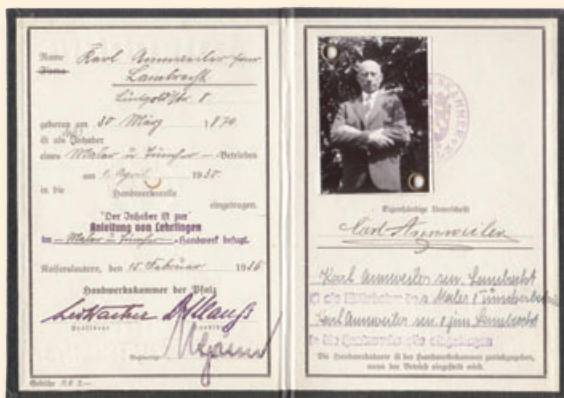 Name Karl Annweiler sen.
Firma Lambrecht
Luitpoldstr. 8
geboren am 30 März 1870
ist als Inhaber
eines Maler u. Tüncher-Betriebes
am 1. April 1930
in die Handwerksrolle
eingetragen.
"Der Inhaber ist zur
Anleitung von Lehrlingen
im Maler u. Tüncher-Handwerk befugt.
Kaiserslautern, den 15. Februar 1936
Handwerkskammer der Pfalz
Präsident
Gebühr RM 2.—
Eigenhändige Unterschrift
Karl Annweiler
Karl Annweiler sen. Lambrecht
ist als Mitinhaber des Maler & Tüncherbetriebes
Karl Annweiler sen. & jun. Lambrecht
in die Handwerksrolle eingetragen
Die Handwerkskarte ist der Handwerkskammer zurückzugeben,
wenn der Betrieb eingestellt wird.